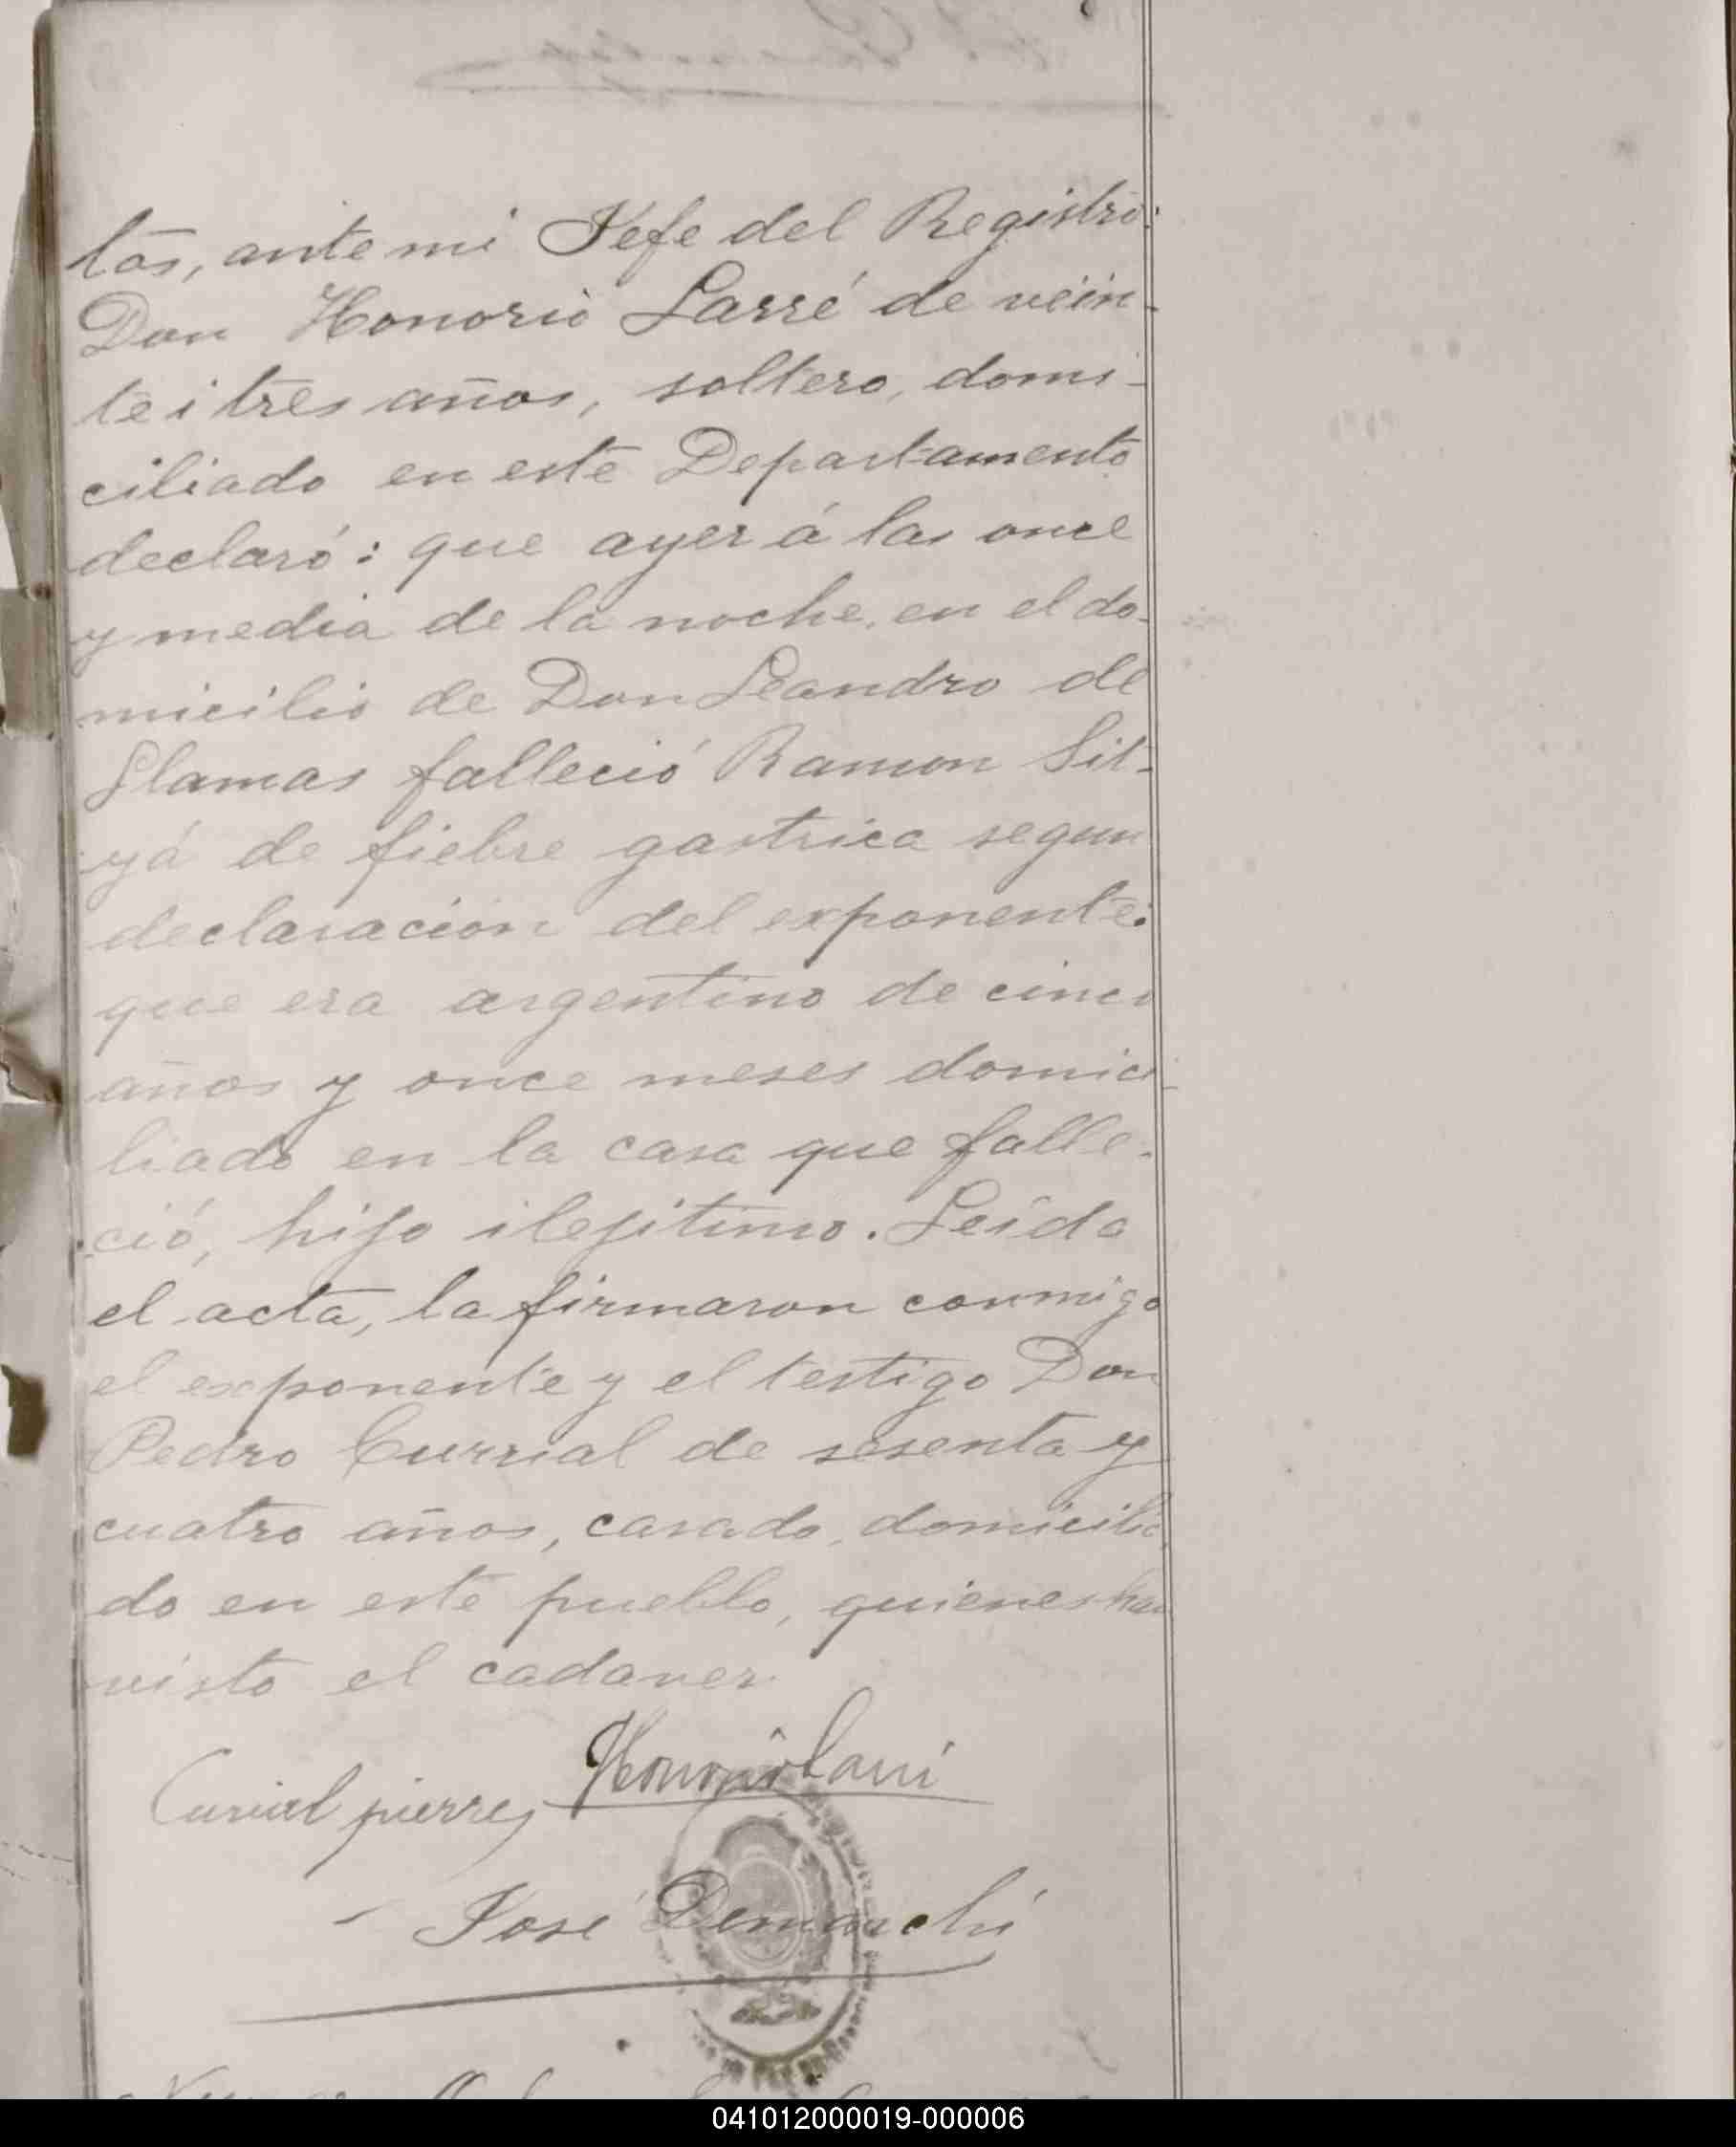 tos, ante mi Jefe del Registro:
Don Honorio Larré de vein-
te i tres años, soltero, domi-
ciliado en este Departamento
declaró: que ayer á las once
y media de la noche, en el do-
micilio de Don Leandro de
Llamas falleció Ramon Sil-
yá de fiebre gastrica segun
declaracion del exponente:
que era argentino de cinco
años y once meses domici-
liado en la casa que falle-
ció, hijo ilejitimo. Leida
el acta, la firmaron conmigo
el exponente y el testigo Don
Pedro Currial de sesenta y
cuatro años, casado, domicilia
do en este pueblo, quienes han
visto el cadaver.
Honorio Larré
Curial pierre
José Demarchi
041012000019-000006